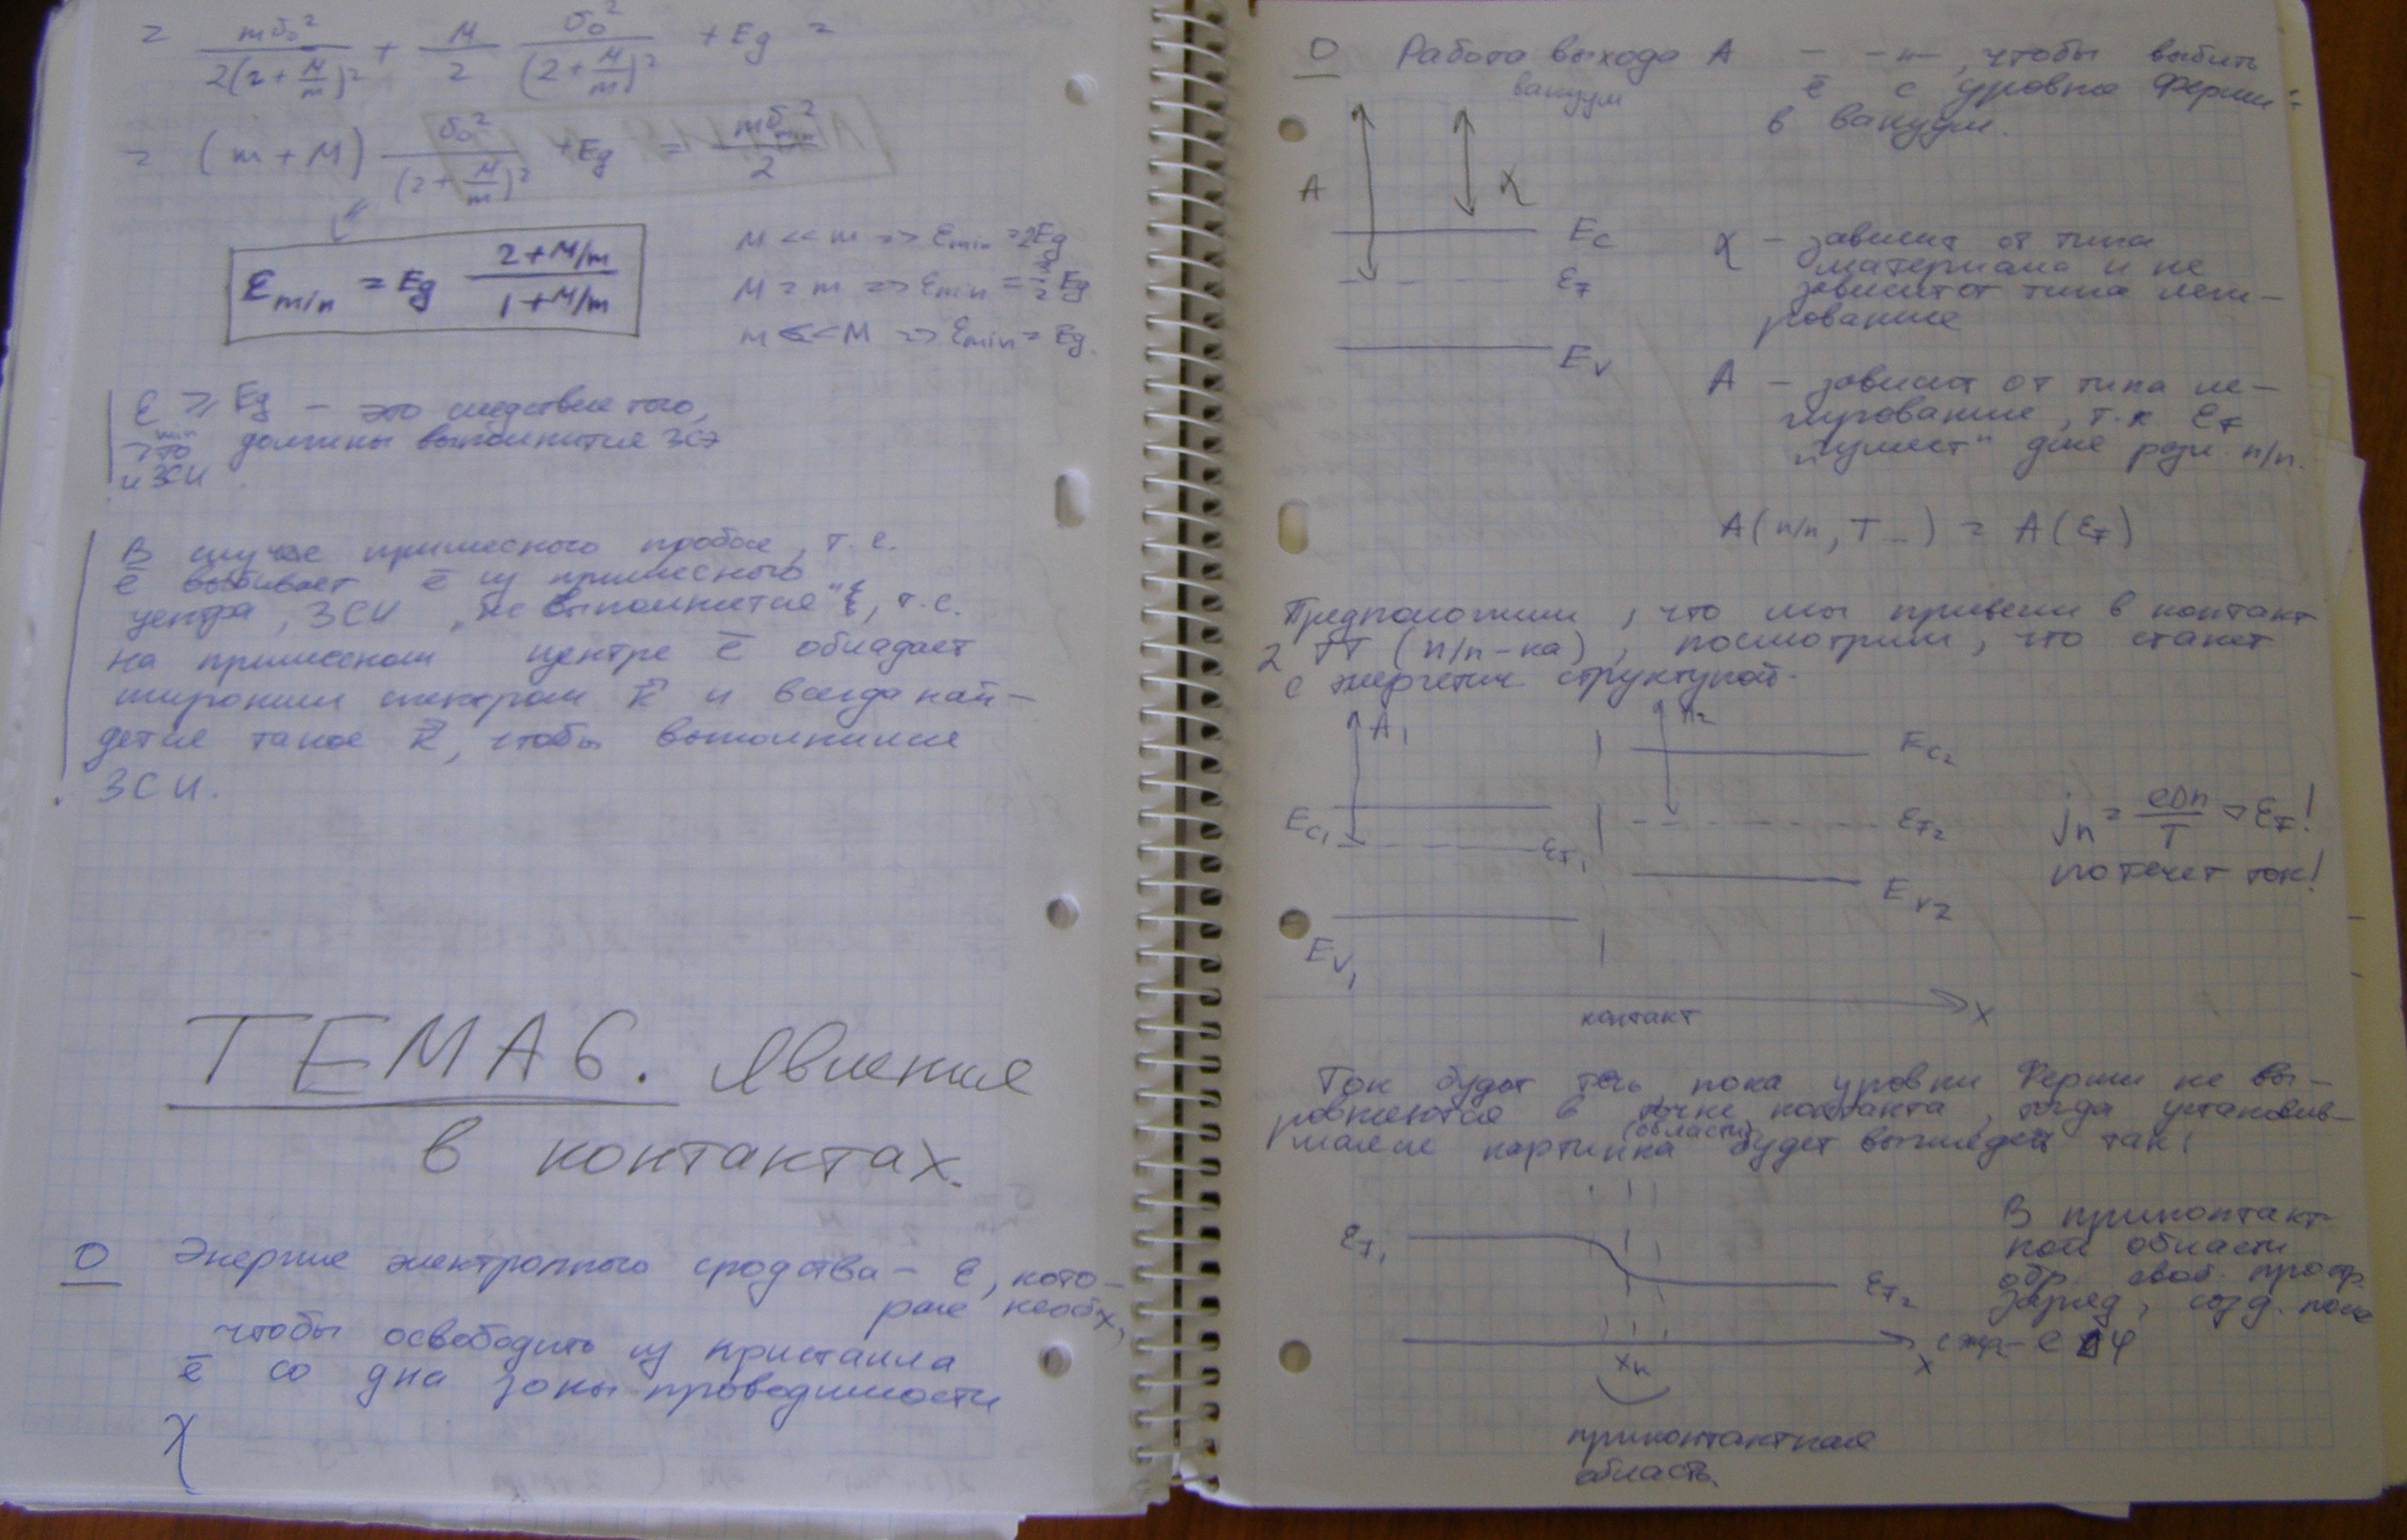 = mσ₀²/2(2+M/m)² + M/2 σ₀²/(2+M/m)² + Eg =
= (m+M) σ₀²/(2+M/m)² + Eg = mσmin²/2
Ɛmin = Eg (2+M/m)/(1+M/m)
M << m => Ɛmin = 2Eg
M = m => Ɛmin = 3/2 Eg
m << M => Ɛmin = Eg.
Ɛmin ≥ Eg – это следствие того,
что должны выполнится ЗСЭ
и ЗСИ
В случае примесного пробоя, т.е.
ē выбивает ē из примесного
центра, ЗСИ „не выполнится", т.е.
на примесном центре ē обладает
широким спектром k⃗ и всегда най-
дется такое k⃗, чтобы выполнился
ЗСИ.
ТЕМА 6. Явления
в контактах.
О Энергия электронного сродства – Ɛ, кото-
рая необх,
чтобы освободить из кристалла
ē со дна зоны проводимости
χ
О Работа выхода A – -"-, чтобы выбить
ē с уровня Ферми
в вакуум.
вакуум
A
χ
Ec
ƐF
Ev
χ – зависит от типа
материала и не
зависит от типа леги-
рования
A – зависит от типа ле-
гирования, т.к ƐF
„гуляет" для разн. п/п.
A(п/п, T...) = A(ƐF)
Предположим, что мы привели в контакт
2 ТТ (п/п-ка), посмотрим, что станет
с энергетич. структурой.
A₁
A₂
Ec₂
Ec₁
ƐF₁
ƐF₂
Ev₂
Ev₁
контакт
x
потечет ток!
Ток будет течь пока уровни Ферми не вы-
ровняются в точке контакта, тогда установив-
(области)
шаяся картинка будет выглядеть так:
ƐF₁
ƐF₂
xк
x
приконтактная
область.
В приконтакт
ной области
обр. своб. простр.
заряд, созд. поле